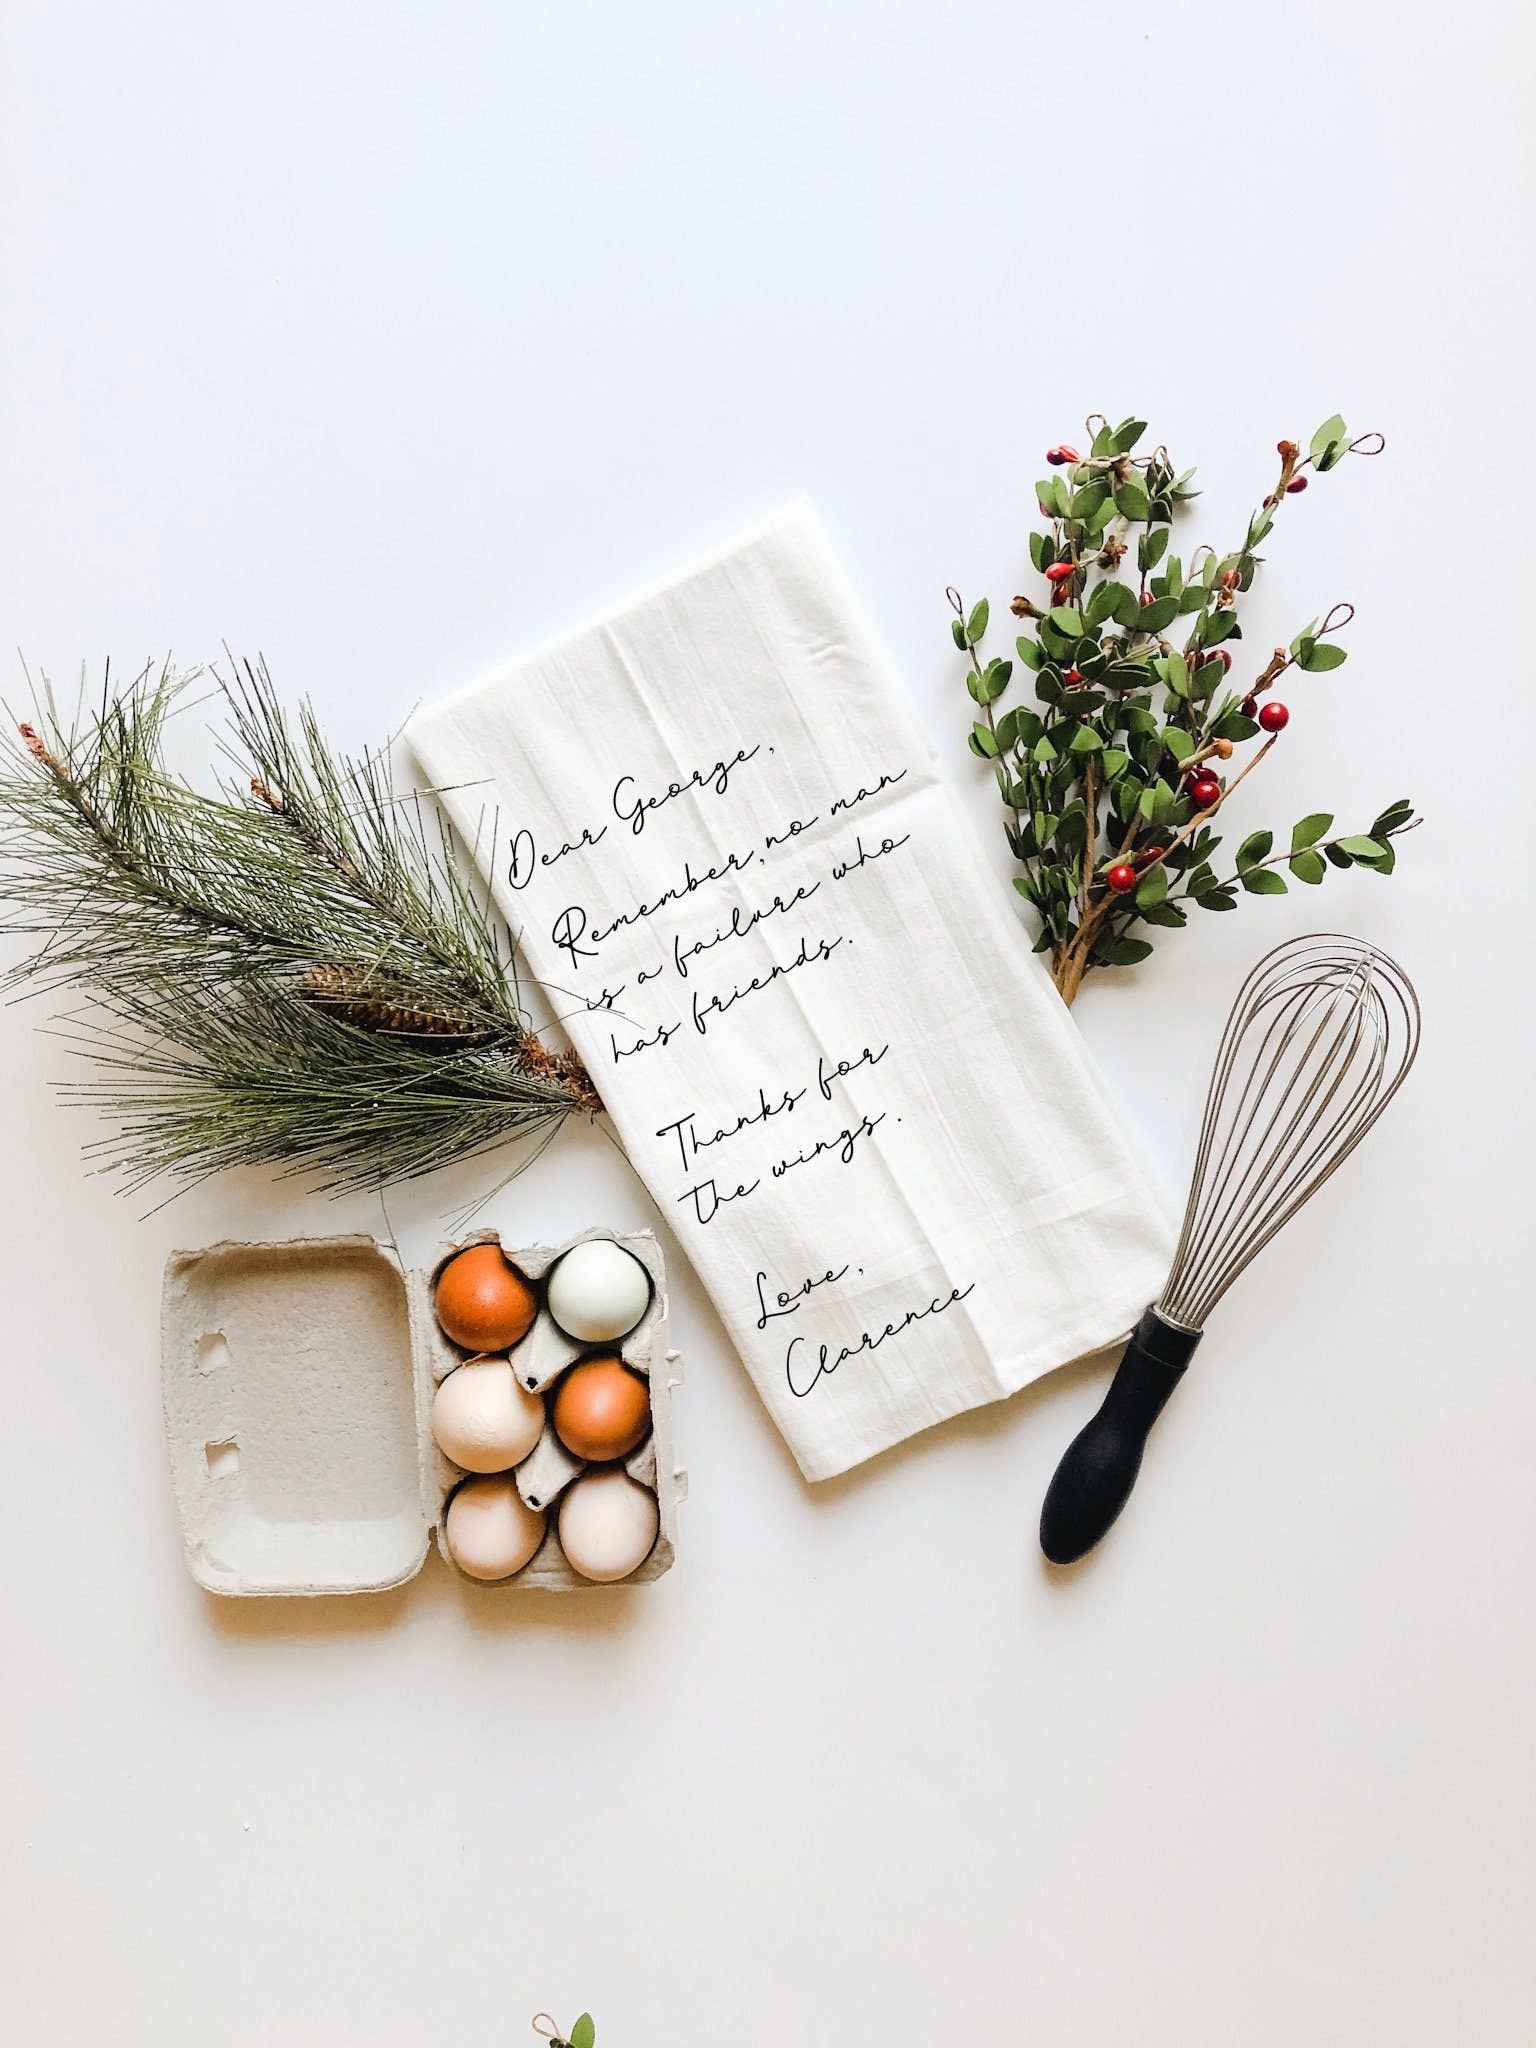 Dear George,
Remember, no man
is a failure who
has friends.
Thanks for
the wings.
Love,
Clarence